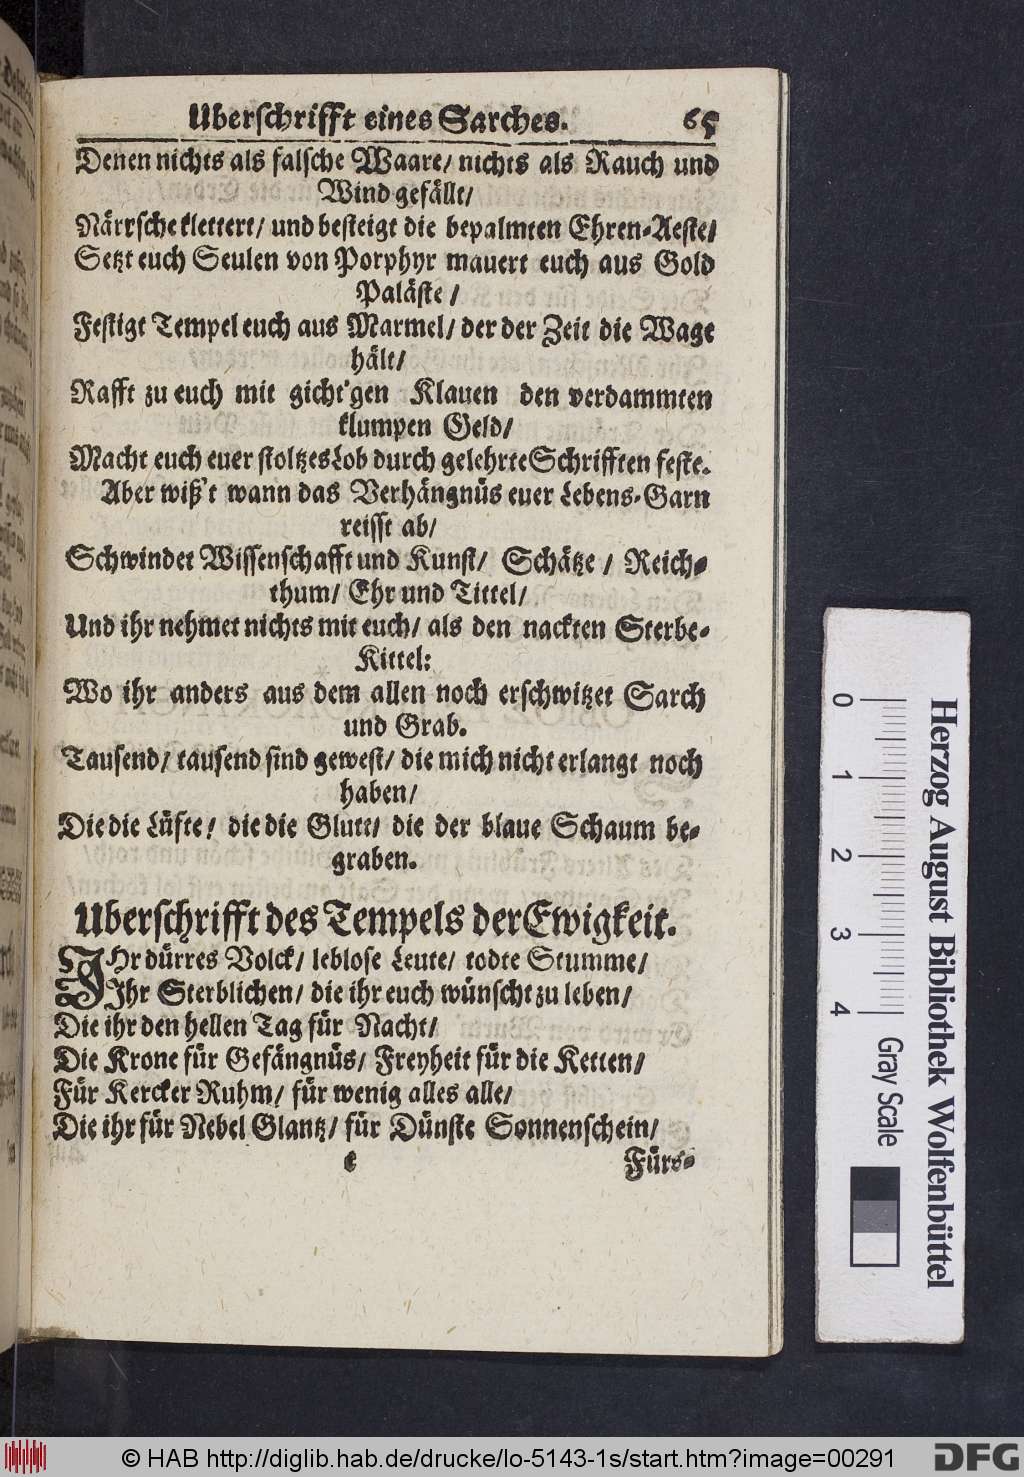 Uberschrifft eines Sarches. 65
Denen nichts als falsche Waare/ nichts als Rauch und
Wind gefällt/
Närrsche klettert/ und besteigt die bepalmten Ehren-Aeste/
Setzt euch Seulen von Porphyr mauert euch aus Gold
Paläste /
Festigt Tempel euch aus Marmel/ der der Zeit die Wage
hält/
Rafft zu euch mit gicht'gen Klauen den verdammten
klumpen Geld/
Macht euch euer stoltzes Lob durch gelehrte Schrifften feste.
Aber wiß't wann das Verhängnüs euer Lebens-Garn
reisst ab/
Schwindet Wissenschafft und Kunst/ Schätze / Reich-
thum/ Ehr und Tittel/
Und ihr nehmet nichts mit euch/ als den nackten Sterbe-
Kittel:
Wo ihr anders aus dem allen noch erschwitzet Sarch
und Grab.
Tausend/ tausend sind gewest/ die mich nicht erlangt noch
haben/
Die die Lüfte/ die die Glutt/ die der blaue Schaum be-
graben.
Uberschrifft des Tempels der Ewigkeit.
IHr dürres Volck/ leblose Leute/ todte Stumme/
Ihr Sterblichen/ die ihr euch wünscht zu leben/
Die ihr den hellen Tag für Nacht/
Die Krone für Gefängnüs/ Freyheit für die Ketten/
Für Kercker Ruhm/ für wenig alles alle/
Die ihr für Nebel Glantz/ für Dünste Sonnenschein/
e Fürs-
0 1 2 3 4
Gray Scale
Herzog August Bibliothek Wolfenbüttel
© HAB http://diglib.hab.de/drucke/lo-5143-1s/start.htm?image=00291
DFG